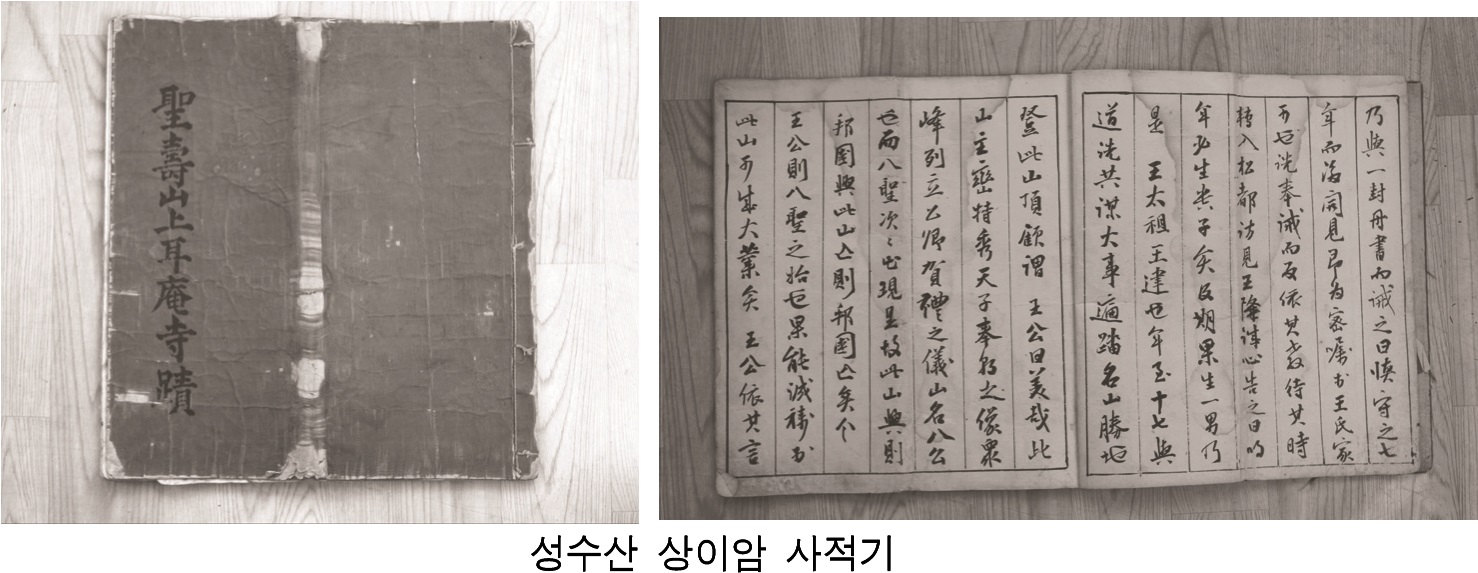 聖壽山上耳庵寺蹟
乃與一封冊書而誡之曰慎守之七
年而後開見卽为密嘱於王氏家
可也詵奉誡而反依其敎待其時
轉入松都訪見王隆誠心告之曰明
年必生貴子矣及期果生一男乃
是 王太祖王建也年至十七與
道詵共謀大事遍踏名山勝地
登此山頂顧謂 王公曰美哉此
山主巒特秀天子奉朝之像衆
峰列立公卿賀禮之儀山名八公
也而八聖次〻出現是故此山興則
邦国興此山亡則邦国亡矣今
王公則八聖之始也果能誠禱於
此山可成大業矣 王公依其言
성수산 상이암 사적기